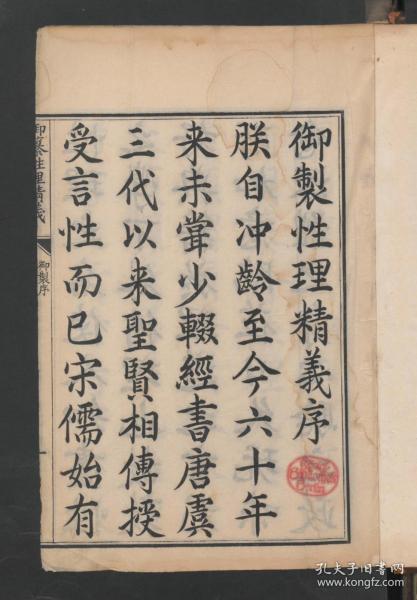 御製性理精義序
朕自沖齡至今六十年
来未甞少輟經書唐虞
三代以来聖賢相傳授
受言性而已宋儒始有
御纂性理精義
御製序
孔夫子旧书网
www.kongfz.com